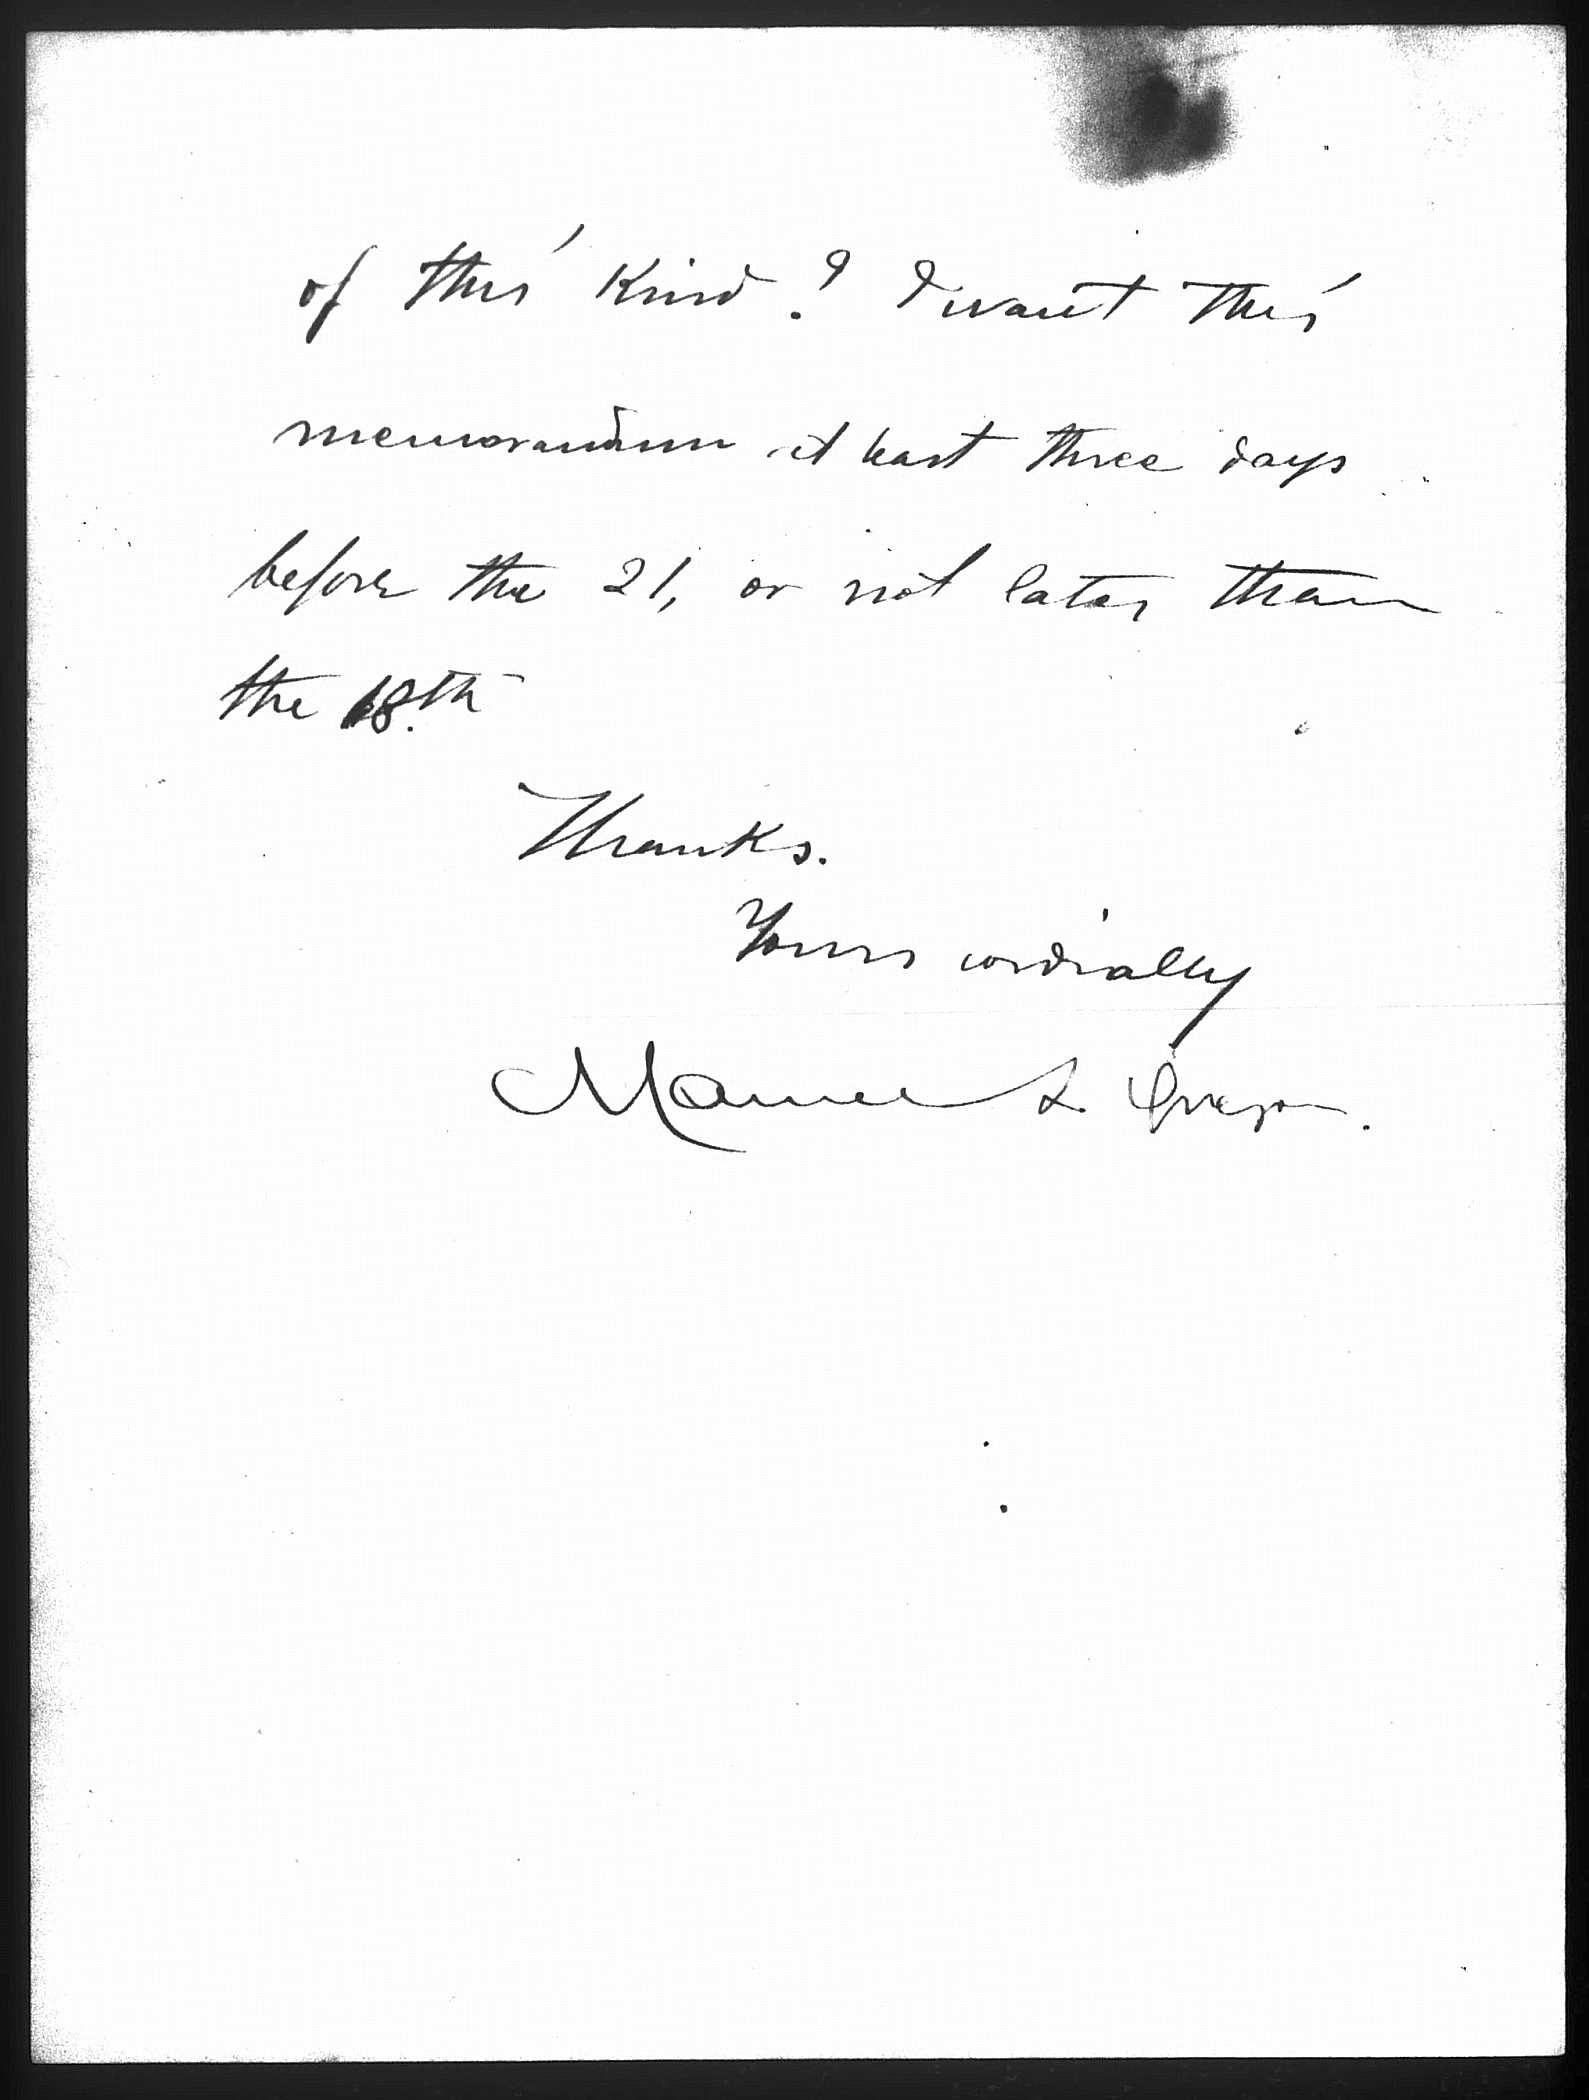 of this kind? I want this
memorandum at least three days
before the 21, or not later than
the 18.th
Thanks.
Yours cordially
Manuel L. Quezon.